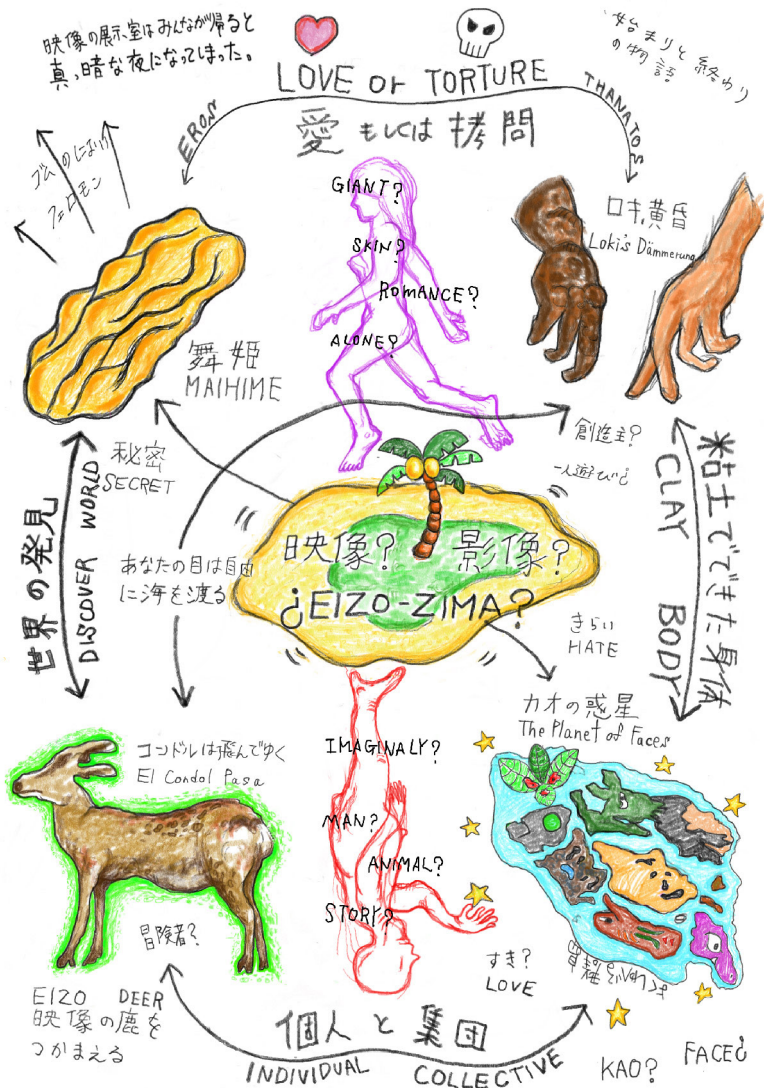 映像の展示室はみんなが帰ると
真っ暗な夜になってしまった。
始まりと終わり
の物語
LOVE or TORTURE
愛もしくは拷問
EROS
THANATOS
ゴムのにおい
フェロモン
GIANT?
SKIN?
ROMANCE?
ALONE?
ロキの黄昏
Loki's Dämmerung
舞姫
MAIHIME
秘密
SECRET
創造主?
一人遊び¿
世界の発見
DISCOVER WORLD
粘土でできた身体
CLAY BODY
あなたの目は自由
に海を渡る
映像? 影像?
¿EIZO-ZIMA?
きらい
HATE
カオの惑星
The Planet of Faces
コンドルは飛んでゆく
El Condol Pasa
IMAGINALY?
MAN?
ANIMAL?
STORY?
冒険者?
すき?
LOVE
EIZO DEER
映像の鹿を
つかまえる
個人と集団
INDIVIDUAL COLLECTIVE
KAO?
FACE¿